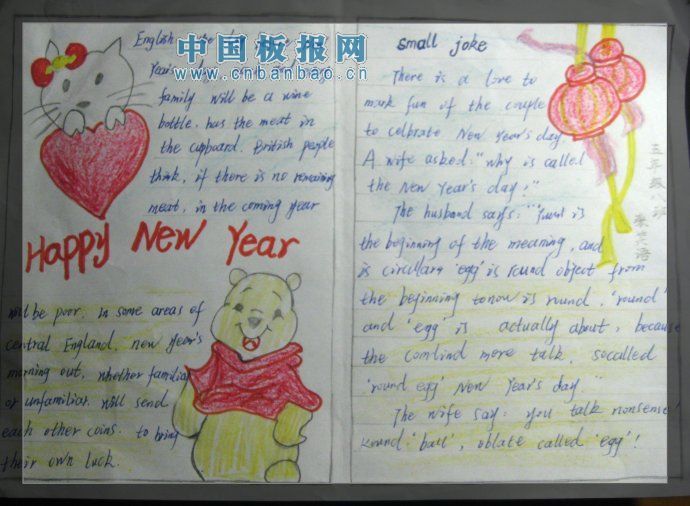 中国板报网
www.cnbanbao.cn
English
Year's
family will be a wine
bottle. has the meat in
the cupboard. British people
think, if there is no remaining
meat, in the coming year
Happy New Year
will be poor. in some areas of
central England. new year's
morning out, whether familiar
or unfamiliar. will send
each other coins. to bring
their own luck.
small joke
There is a love to
mark fun of the couple
to celbrate New Year's day.
A wife asked: "why is called
the New Year's day?"
The husband says: " is
the beginning of the meaning, and
is circulary 'egg' is round object from
the beginning to now is round. 'round'
and 'egg' is actually about, because
the comlind mere talk, socalled
'round egg' New Year's day "
The wife say: you talk nonsense!
Round: 'ball', oblate called 'egg'!
五年级